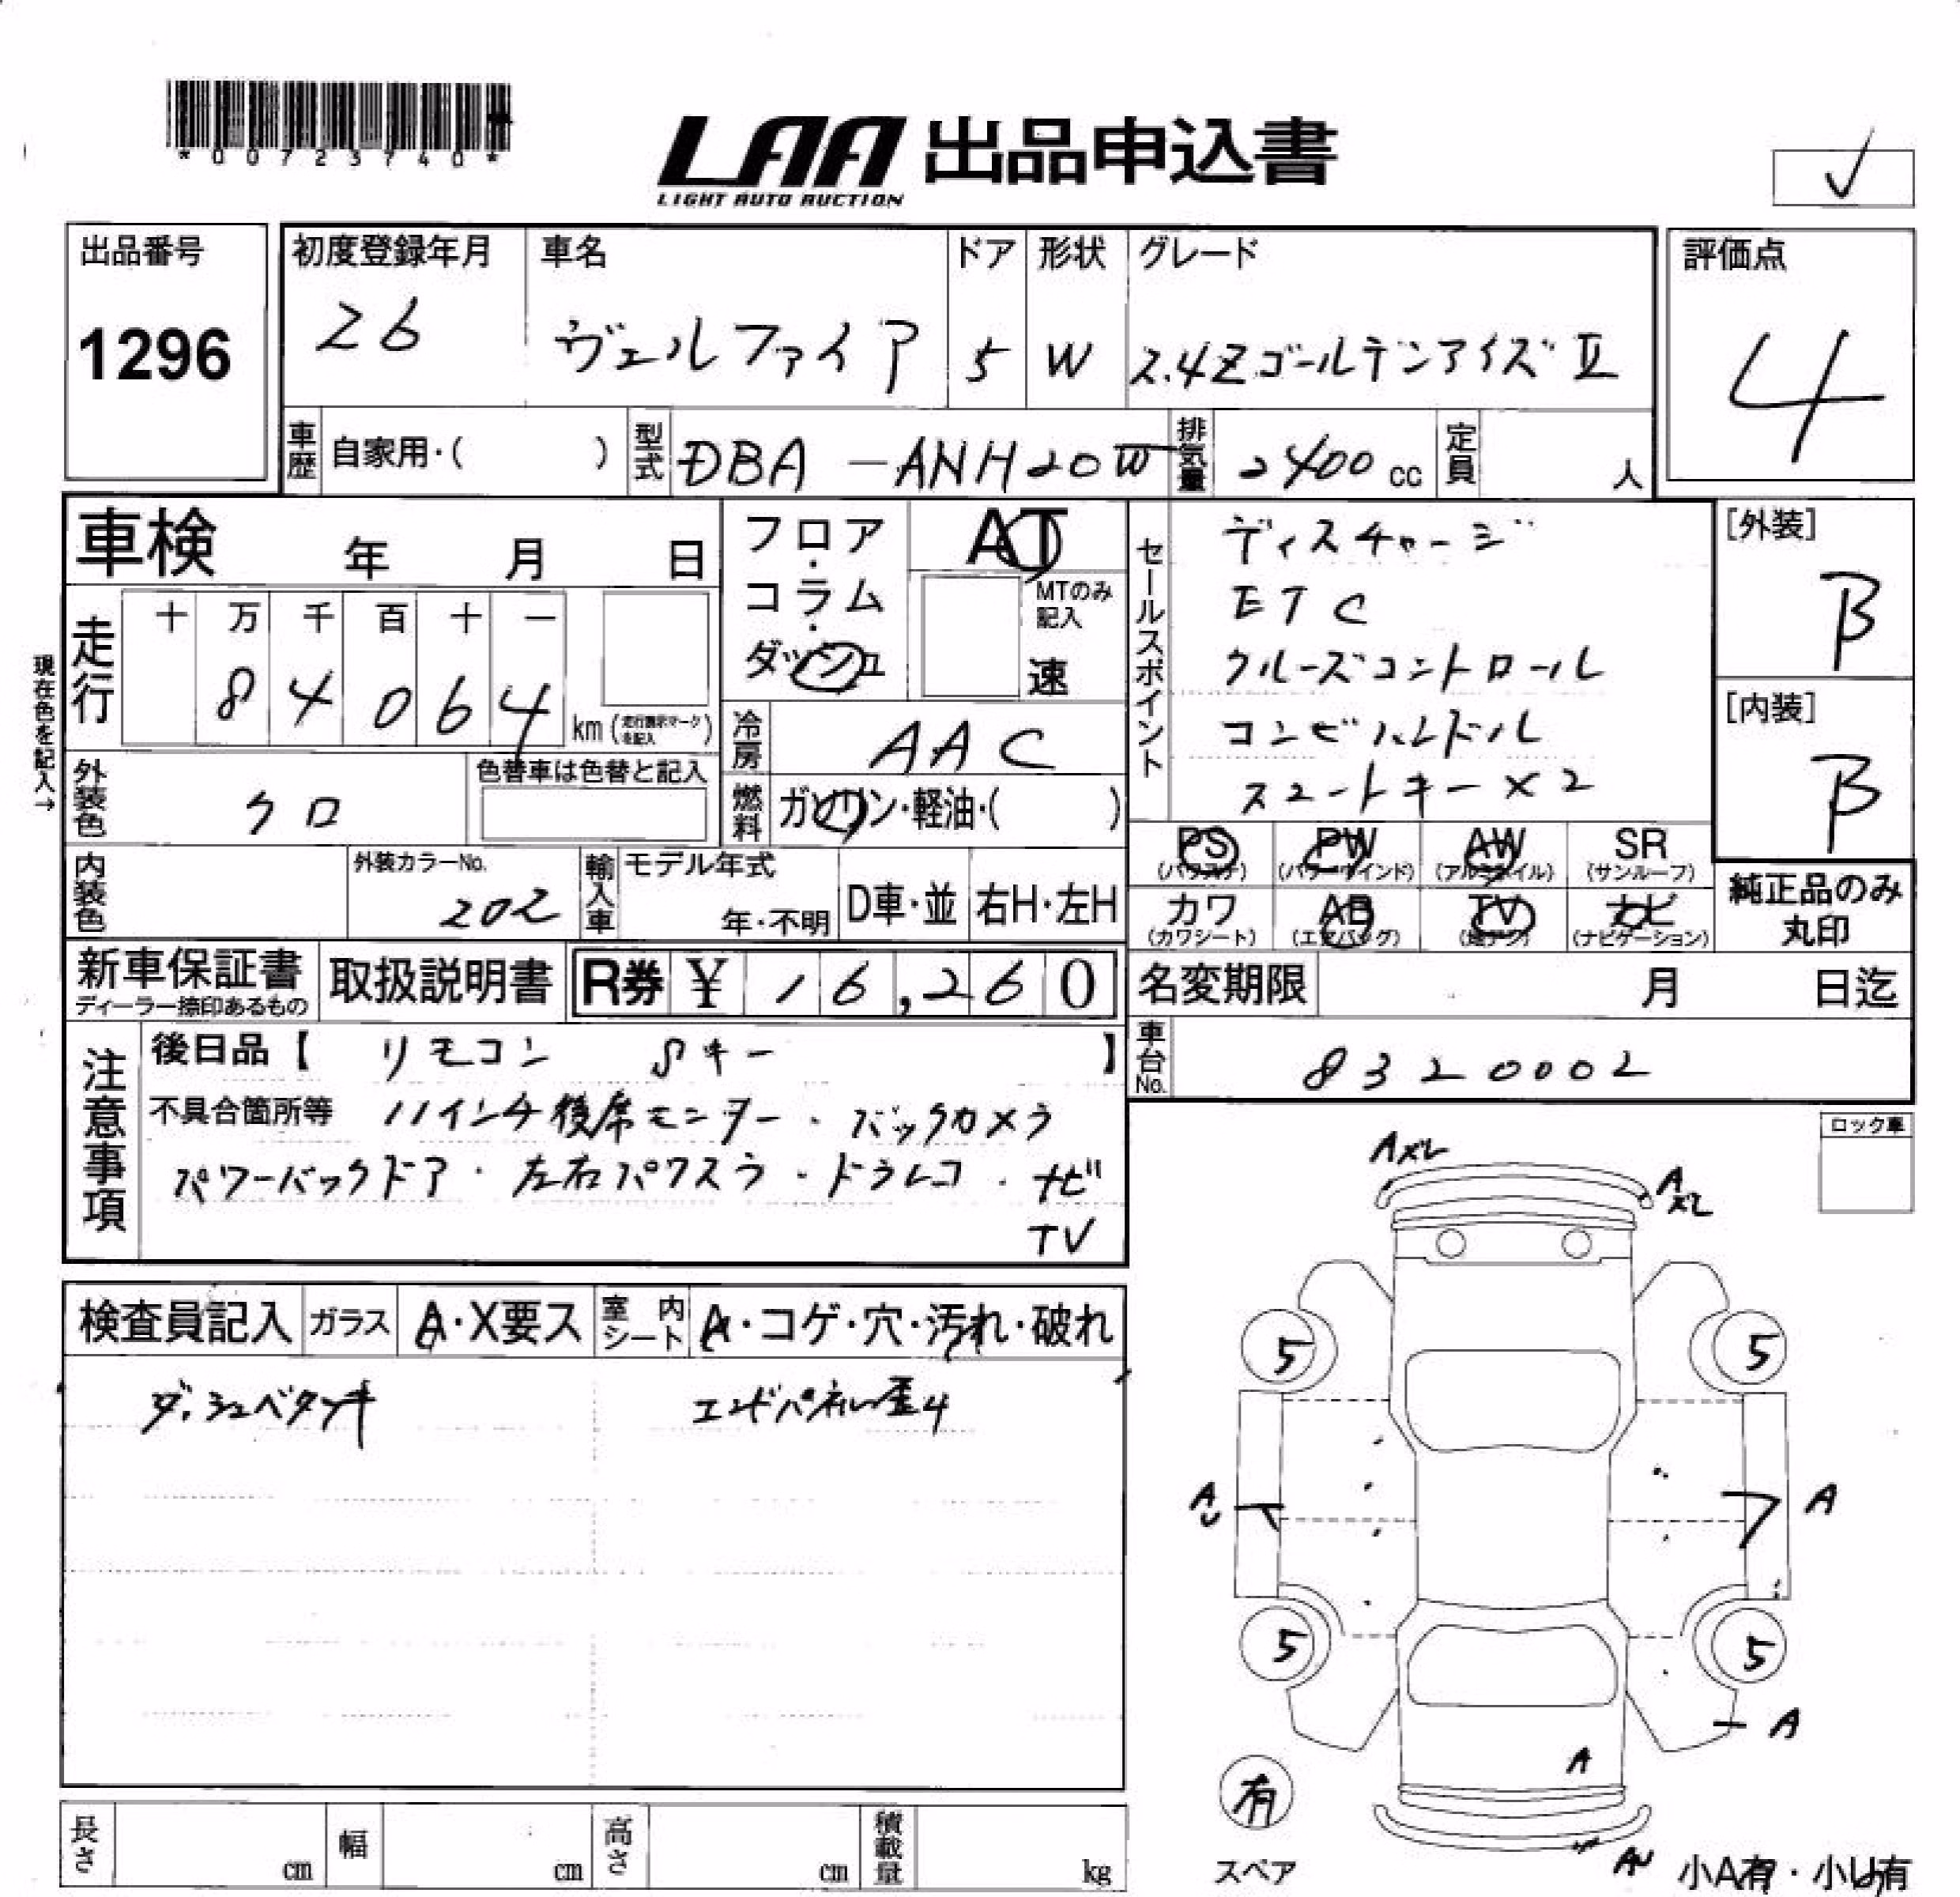 *00723740*
LAA 出品申込書
LIGHT AUTO AUCTION
✓
出品番号
1296
初度登録年月
26
車名
ヴェルファイア
ドア
5
形状
W
グレード
2.4Zゴールデンアイズ Ⅱ
評価点
4
車歴 自家用・( )
型式 DBA-ANH20W
排気量 2400 cc
定員 人
車検 年 月 日
現在色を記入→
走行
十 万 千 百 十 一
8 4 0 6 4
km (走行表示マークを記入)
フロア・コラム・ダッシュ
AT
MTのみ記入
速
冷房 AAC
燃料 ガソリン・軽油・( )
外装色 クロ
色替車は色替と記入
内装色
外装カラーNo.
202
輸入車
モデル年式
年・不明
D車・並
右H・左H
セールスポイント
ディスチャージ
ETC
クルーズコントロール
コンビハンドル
スマートキー×2
[外装]
B
[内装]
B
PS (パワステ)
PW (パワーウインド)
AW (アルミホイル)
SR (サンルーフ)
カワ (カワシート)
AB (エアバッグ)
TV (地デジ)
ナビ (ナビゲーション)
純正品のみ
丸印
新車保証書
ディーラー捺印あるもの
取扱説明書
R券 ¥ 16,260
名変期限 月 日迄
車台No. 8320002
注意事項
後日品【 リモコン Sキー 】
不具合箇所等 11インチ後席モニター・バックカメラ
パワーバックドア・左右パワスラ・ドラレコ・ナビ
TV
ロック車
検査員記入
ガラス A・X要ス
室内シート A・コゲ・穴・汚れ・破れ
ダッシュベタツキ
エンドパネル歪4
A
A
5
5
A
U
A
5
5
A
A
有
スペア
AU
小A有・小U有
長さ cm
幅 cm
高さ cm
積載量 kg